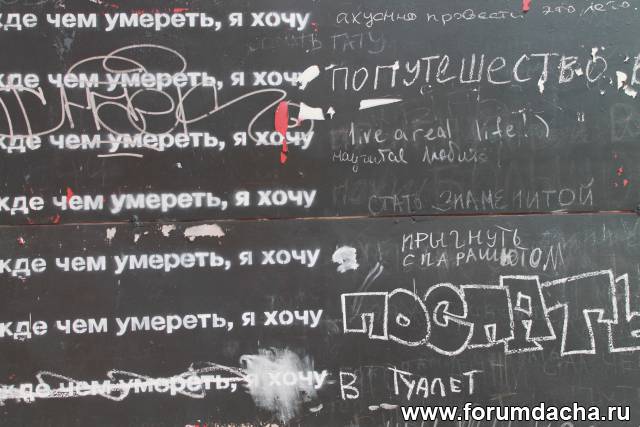 жде чем умереть, я хочу акуенно провести это лето.
СТАТЬ ТАТУ
жде чем умереть, я хочу ПОПУТЕШЕСТВО
жде чем умереть, я хочу live a real life!)
научится любить
жде чем умереть, я хочу СТАТЬ ЗНАМЕНИТОЙ
жде чем умереть, я хочу ПРЫГНУТЬ
С ПАРАШЮТОМ
жде чем умереть, я хочу ПОСПАТЬ
жде чем умереть, я хочу В ТУАЛЕТ
www.forumdacha.ru